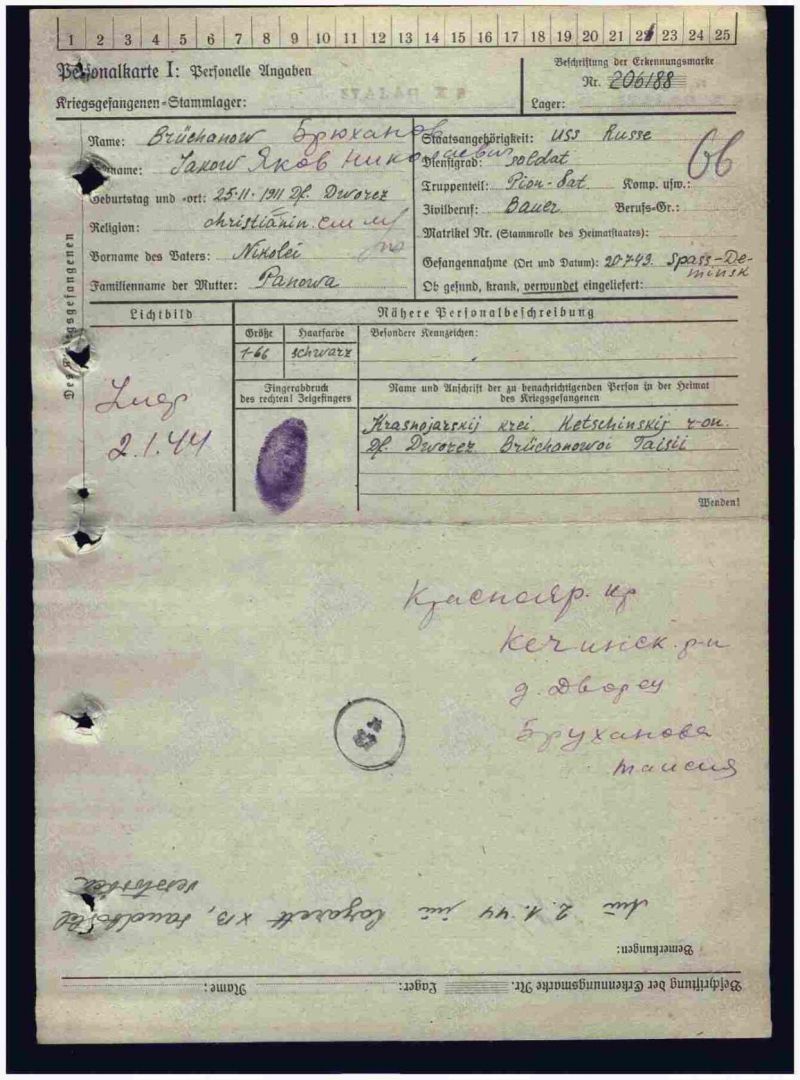 1 2 3 4 5 6 7 8 9 10 11 12 13 14 15 16 17 18 19 20 21 22 23 24 25
Personalkarte I: Personelle Angaben
Kriegsgefangenen-Stammlager:
Beschriftung der Erkennungsmarke
Nr. 206188
Lager:
Des Kriegsgefangenen
Name: Brüchanow Брюханов
Vorname: Jakow Яков Николаевич
Geburtstag und -ort: 25-11-1911 Df. Dworez
Religion: christianin
Vorname des Vaters: Nikolei
Familienname der Mutter: Panowa
Staatsangehörigkeit: USS Russe
Dienstgrad: Soldat
Truppenteil: Pion-Bat. Komp. usw.:
Zivilberuf: Bauer Berufs-Gr.:
Matrikel Nr. (Stammrolle des Heimatstaates):
Gefangennahme (Ort und Datum): 20-7-43. Spass-De-
minsk
Ob gesund, krank, verwundet eingeliefert:
Lichtbild
2.1.44
Nähere Personalbeschreibung
Größe Haarfarbe Besondere Kennzeichen:
1-66 schwarz
Fingerabdruck
des rechten! Zeigefingers
Name und Anschrift der zu benachrichtigenden Person in der Heimat
des Kriegsgefangenen
Krasnojarskij krei. Ketschinskij r-on.
Df. Dworez Brüchanowoi Taisii
Wenden!
Краснояр. кр
Кечинск. р-н
д. Дворец
Бруханова
Таисия
Beschriftung der Erkennungsmarke Nr. Lager: Name:
Bemerkungen:
Am 2.1.44 im Lazarett XB, Sandbostel
verstorben